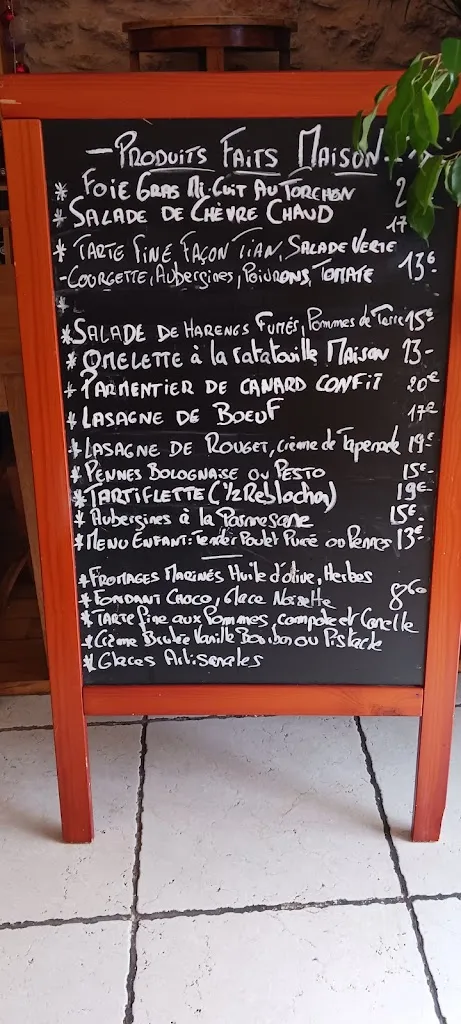 - PRODUITS FAITS MAISON...
* FOIE GRAS MI-CUIT AU TORCHON 2
* SALADE DE CHÈVRE CHAUD 17
* TARTE FINE FAÇON TIAN, SALADE VERTE
- COURGETTE, AUBERGINES, POIVRONS, TOMATE 13€
*
* SALADE DE HARENGS FUMÉS, Pommes de Terre 15€
* OMELETTE à la ratatouille MAISON 13-
* PARMENTIER DE CANARD CONFIT 20€
* LASAGNE DE BOEUF 17€
* LASAGNE DE ROUGET, crème de Tapenade 19€
* PENNES BOLOGNAISE OU PESTO 15€-
* TARTIFLETTE (1/2 Reblochon) 19€
* Aubergines à la Parmesane 15€.
* MENU ENFANT: Tender Poulet Purée ou Pennes 13€
* FROMAGES MARINÉS Huile d'olive, Herbes
* FONDANT CHOCO, Glace Noisette 8€60
* TARTE Fine aux Pommes, compote et Canelle
* Crème Brulée Vanille Bourbon ou Pistache
* Glaces Artisanales